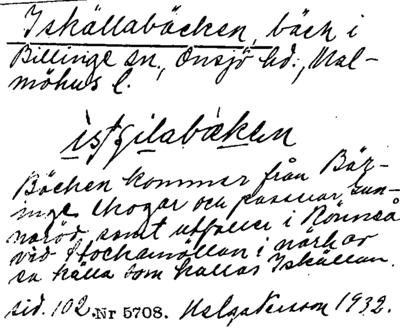 Iskällabäcken, bäck i
Billinge sn, Onsjö hd., Mal-
möhus l.
istɟilabæken
Bäcken kommer från Bäz-
inge skogar och passerar Gun-
naröd samt utfaller i Rönneå
vid Stockamöllan i närh. av
en källa som kallas Iskällan.
sid. 102. Nr 5708. Helge Persson 1932.